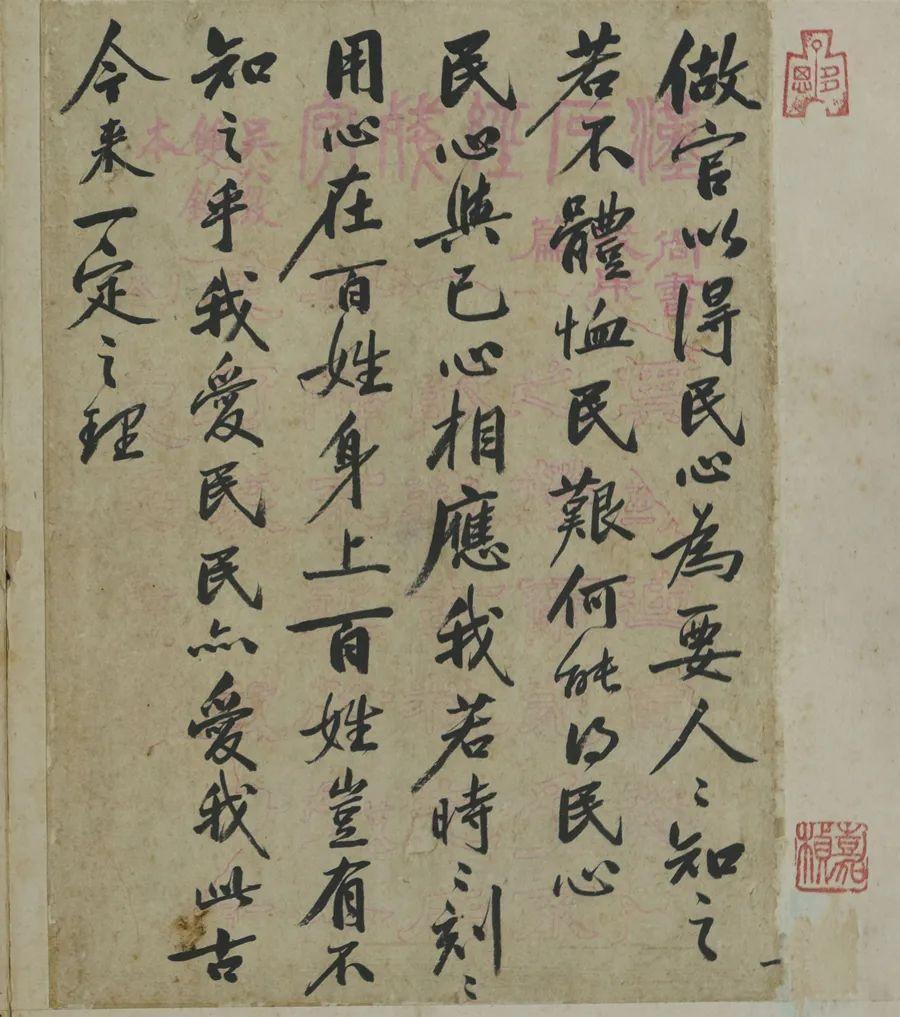 做官以得民心為要人〻知之
若不體恤民艱何能得民心
民心與己心相應我若時〻刻〻
用心在百姓身上百姓豈有不
知之乎我愛民民亦愛我此古
今来一定之理
漢石經殘字